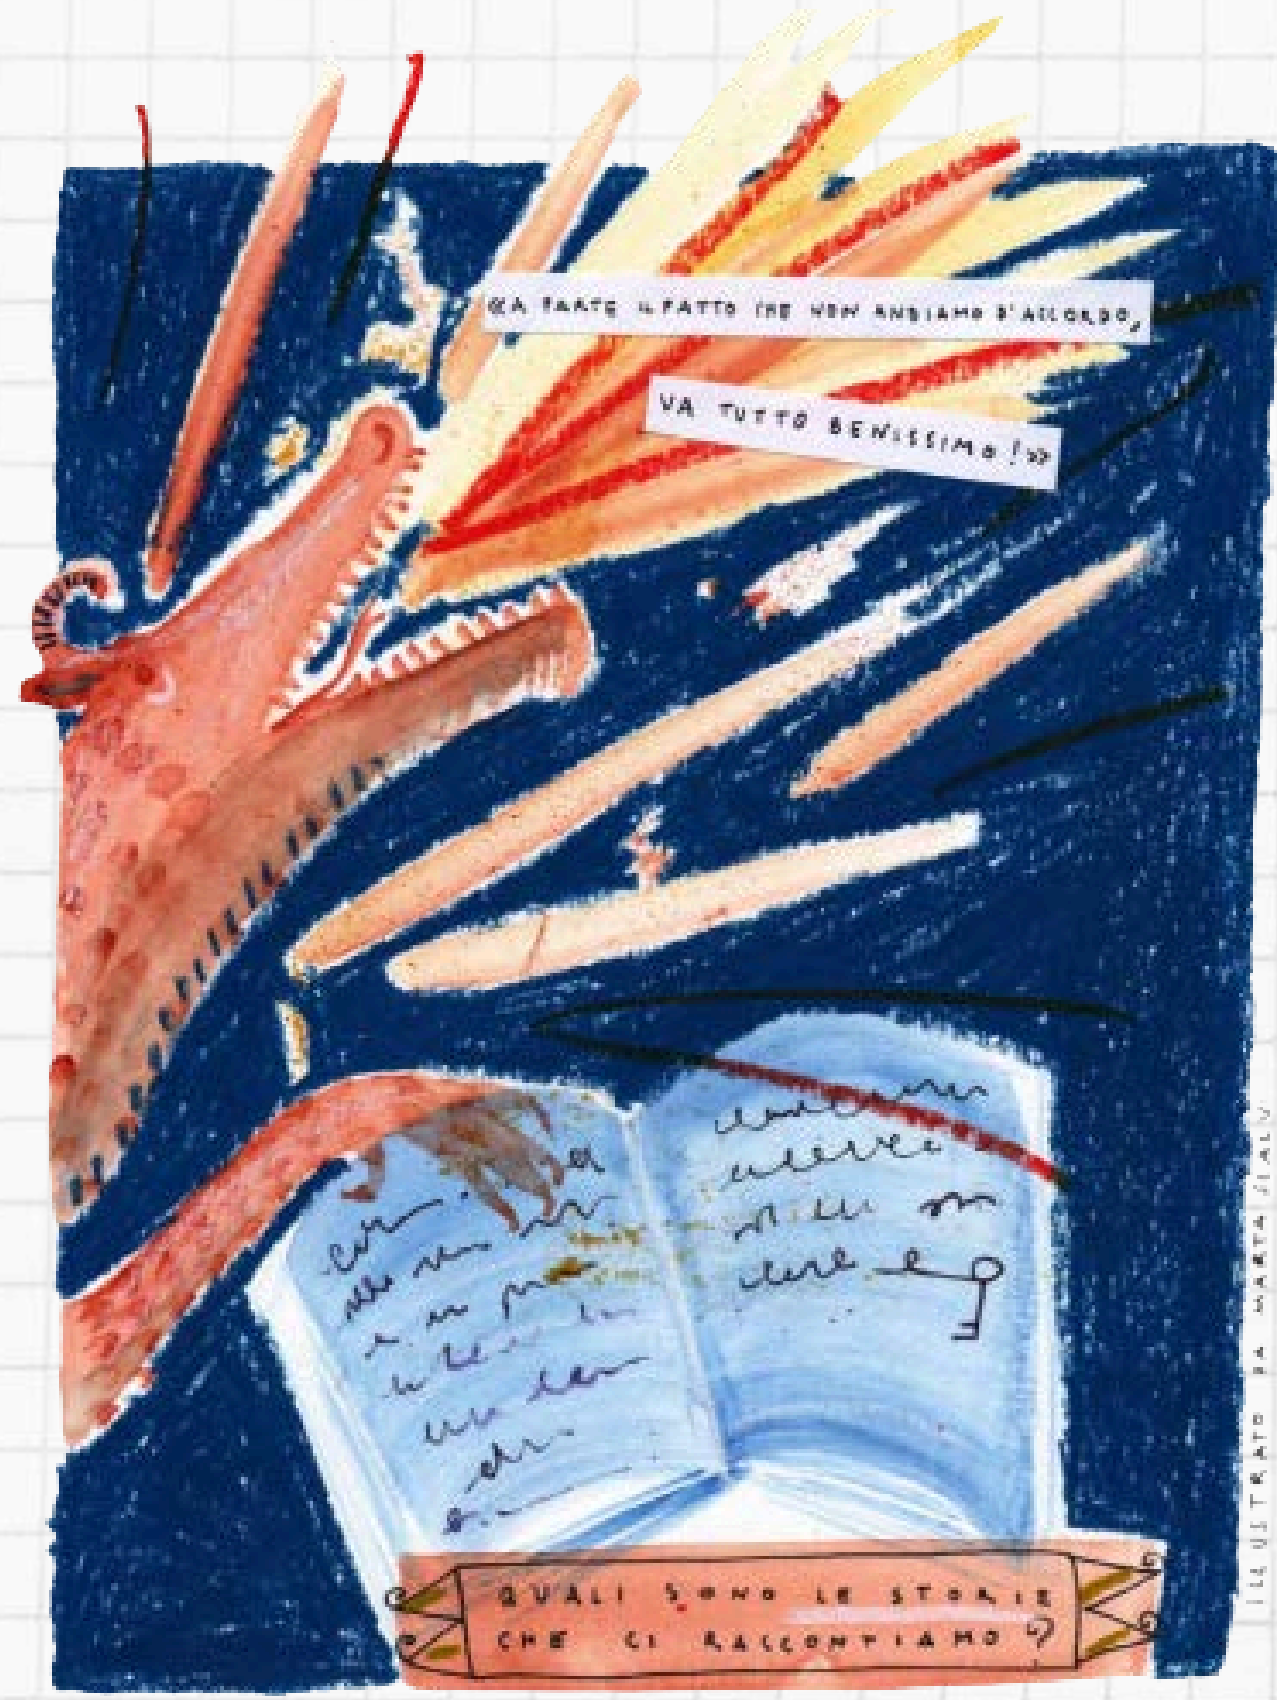 «A PARTE IL FATTO CHE NON ANDIAMO D'ACCORDO,
VA TUTTO BENISSIMO!»
QUALI SONO LE STORIE
CHE CI RACCONTIAMO?
ILLUSTRATO DA MARTA